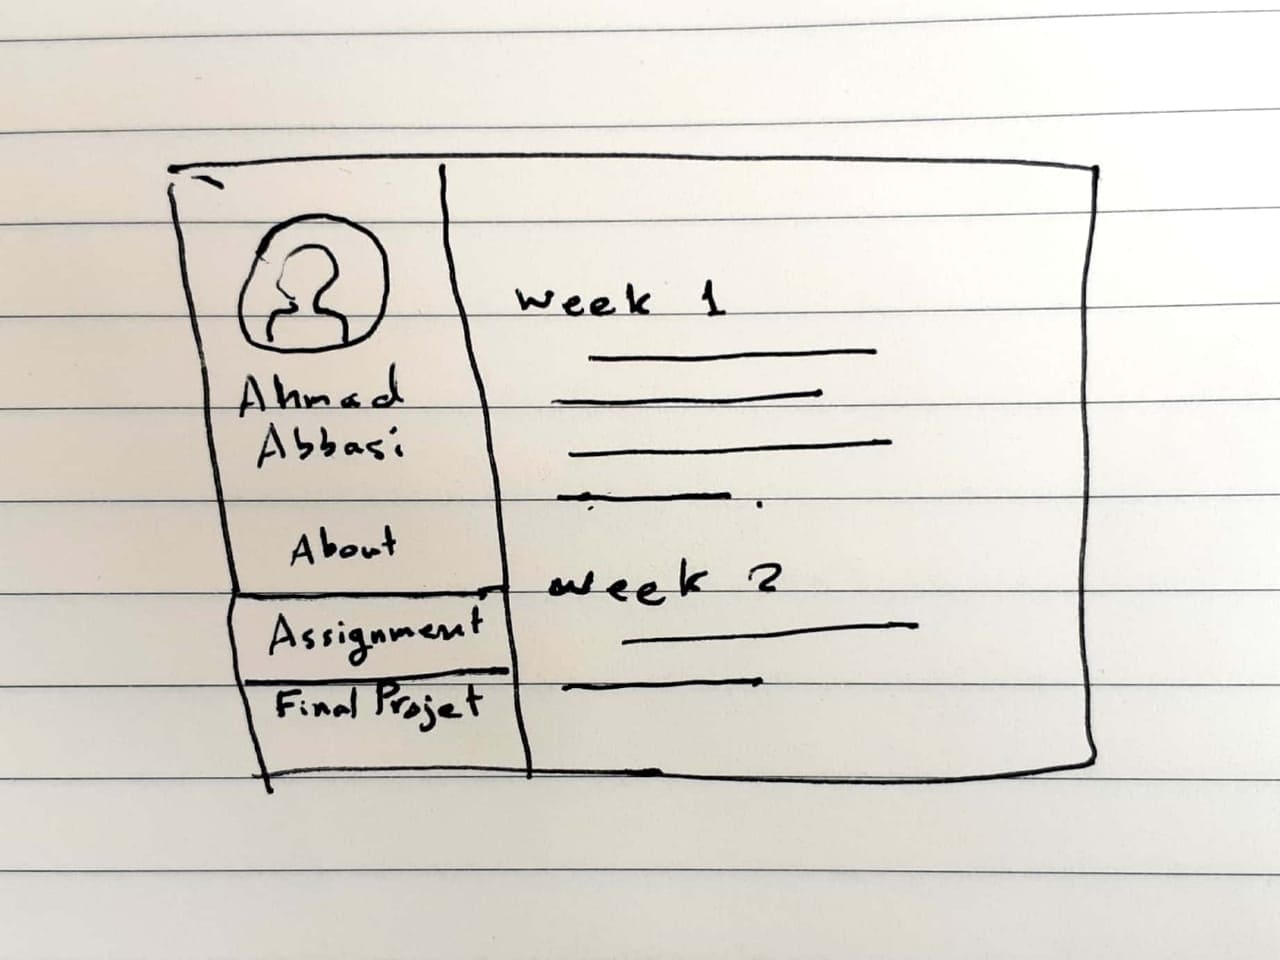 Ahmad
Abbasi
About
Assignment
Final Projet
week 1
week 2